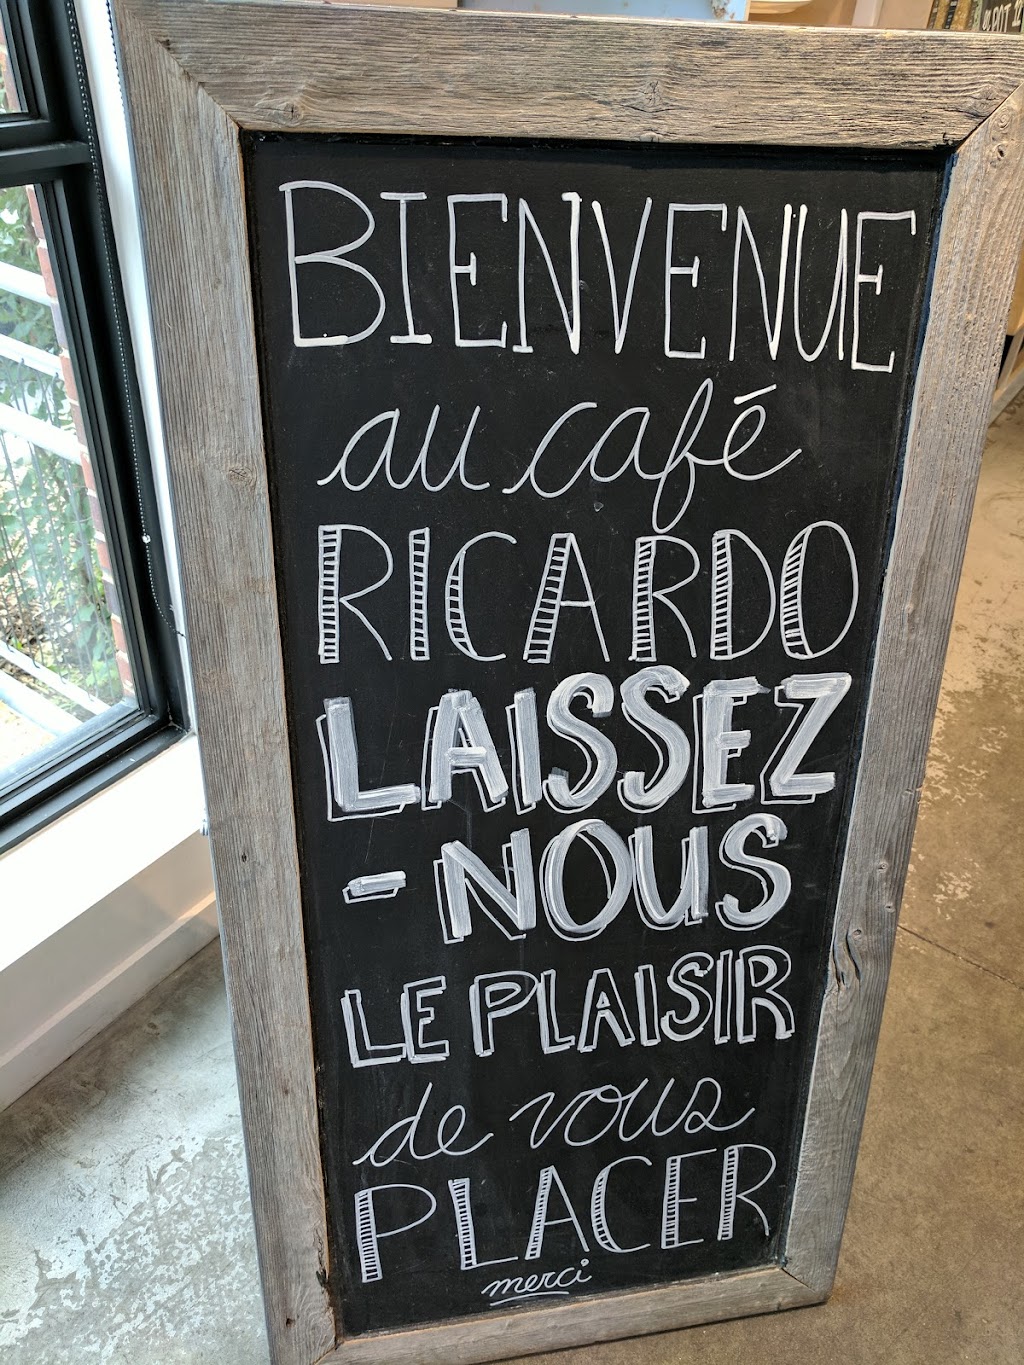 BIENVENUE
au café
RICARDO
LAISSEZ
-NOUS
LE PLAISIR
de vous
PLACER
merci